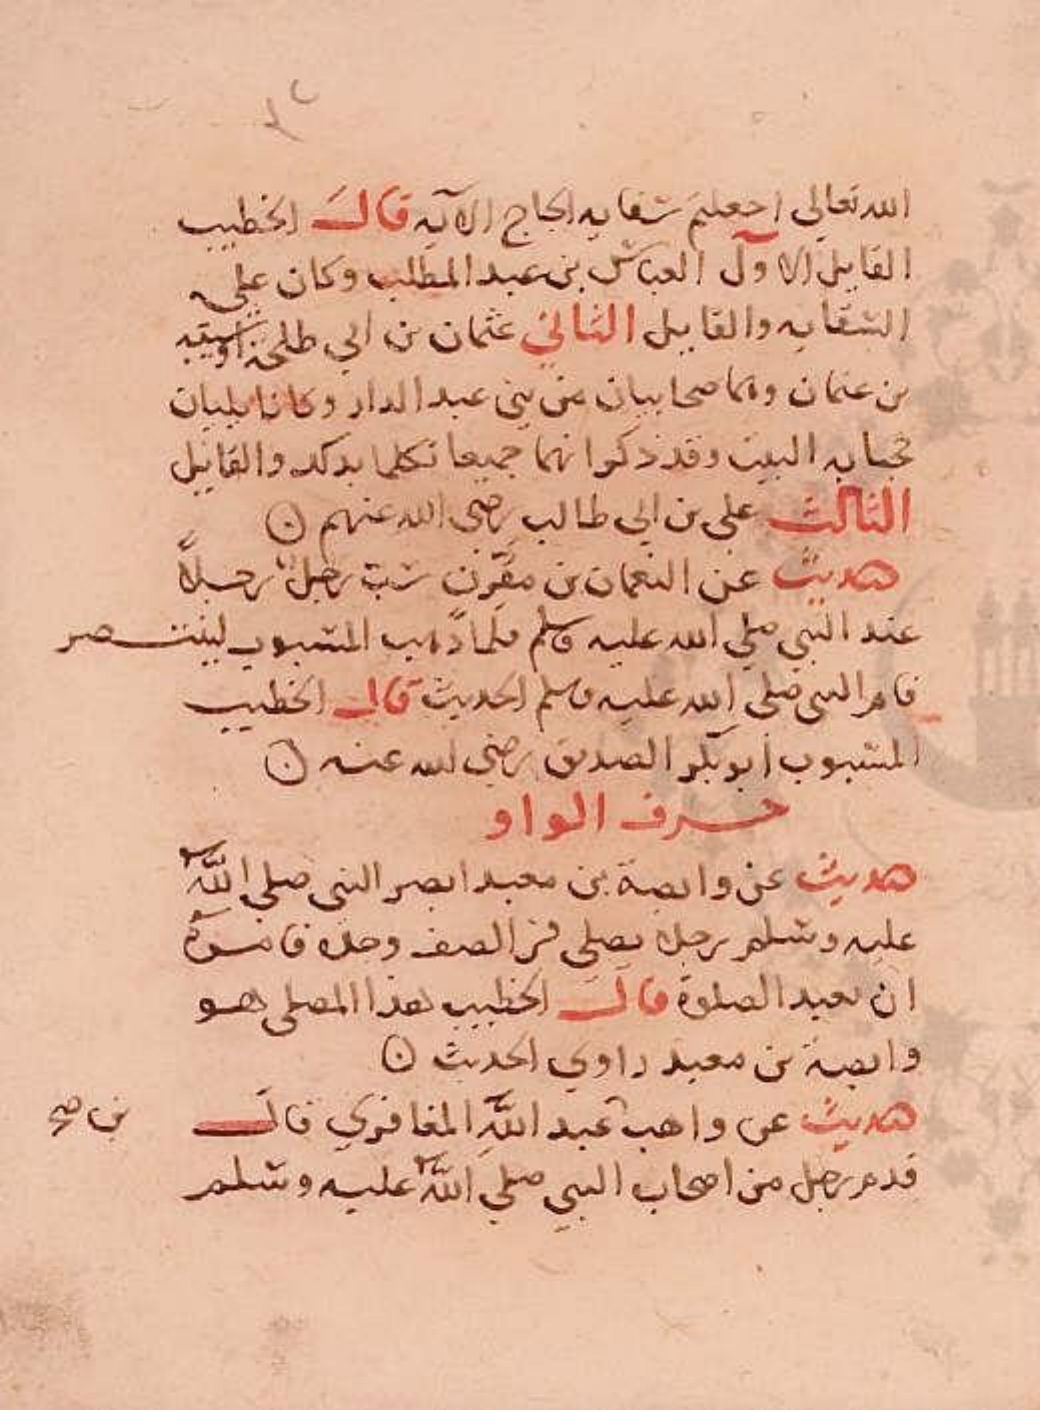 الله تعالى اجعلتم سقايه الحاج الايه قال الخطيب
القايل الاول العباس بن عبد المطلب وكان على
السقايه والقايل الثاني عثمان بن ابي طلحة او شيبه
بن عثمان وهما صحابيان من بني عبد الدار وكانا يليان
حجابه البيت وقد ذكر انهما جميعا تكلما بذلك والقايل
الثالث علي بن ابي طالب رضي الله عنهم
حديث عن النعمان بن مقرن سب رجل رجلاً
عند النبي صلي الله عليه وسلم فلما ذهب المسبوب لينتصر
فامر النبي صلي الله عليه وسلم الحديث قال الخطيب
المسبوب ابو بكر الصديق رضي الله عنه
حرف الواو
حديث عن وابصة بن معبد ابصر النبي صلي الله
عليه وسلم رجلا يصلي في الصف وحده فامره
ان يعيد الصلوة قال الخطيب هذا المصلي هو
وابصة بن معبد راوي الحديث
حديث عن واهب عبد الله المغافري قال
بن صح
قدم رجل من اصحاب النبي صلي الله عليه وسلم